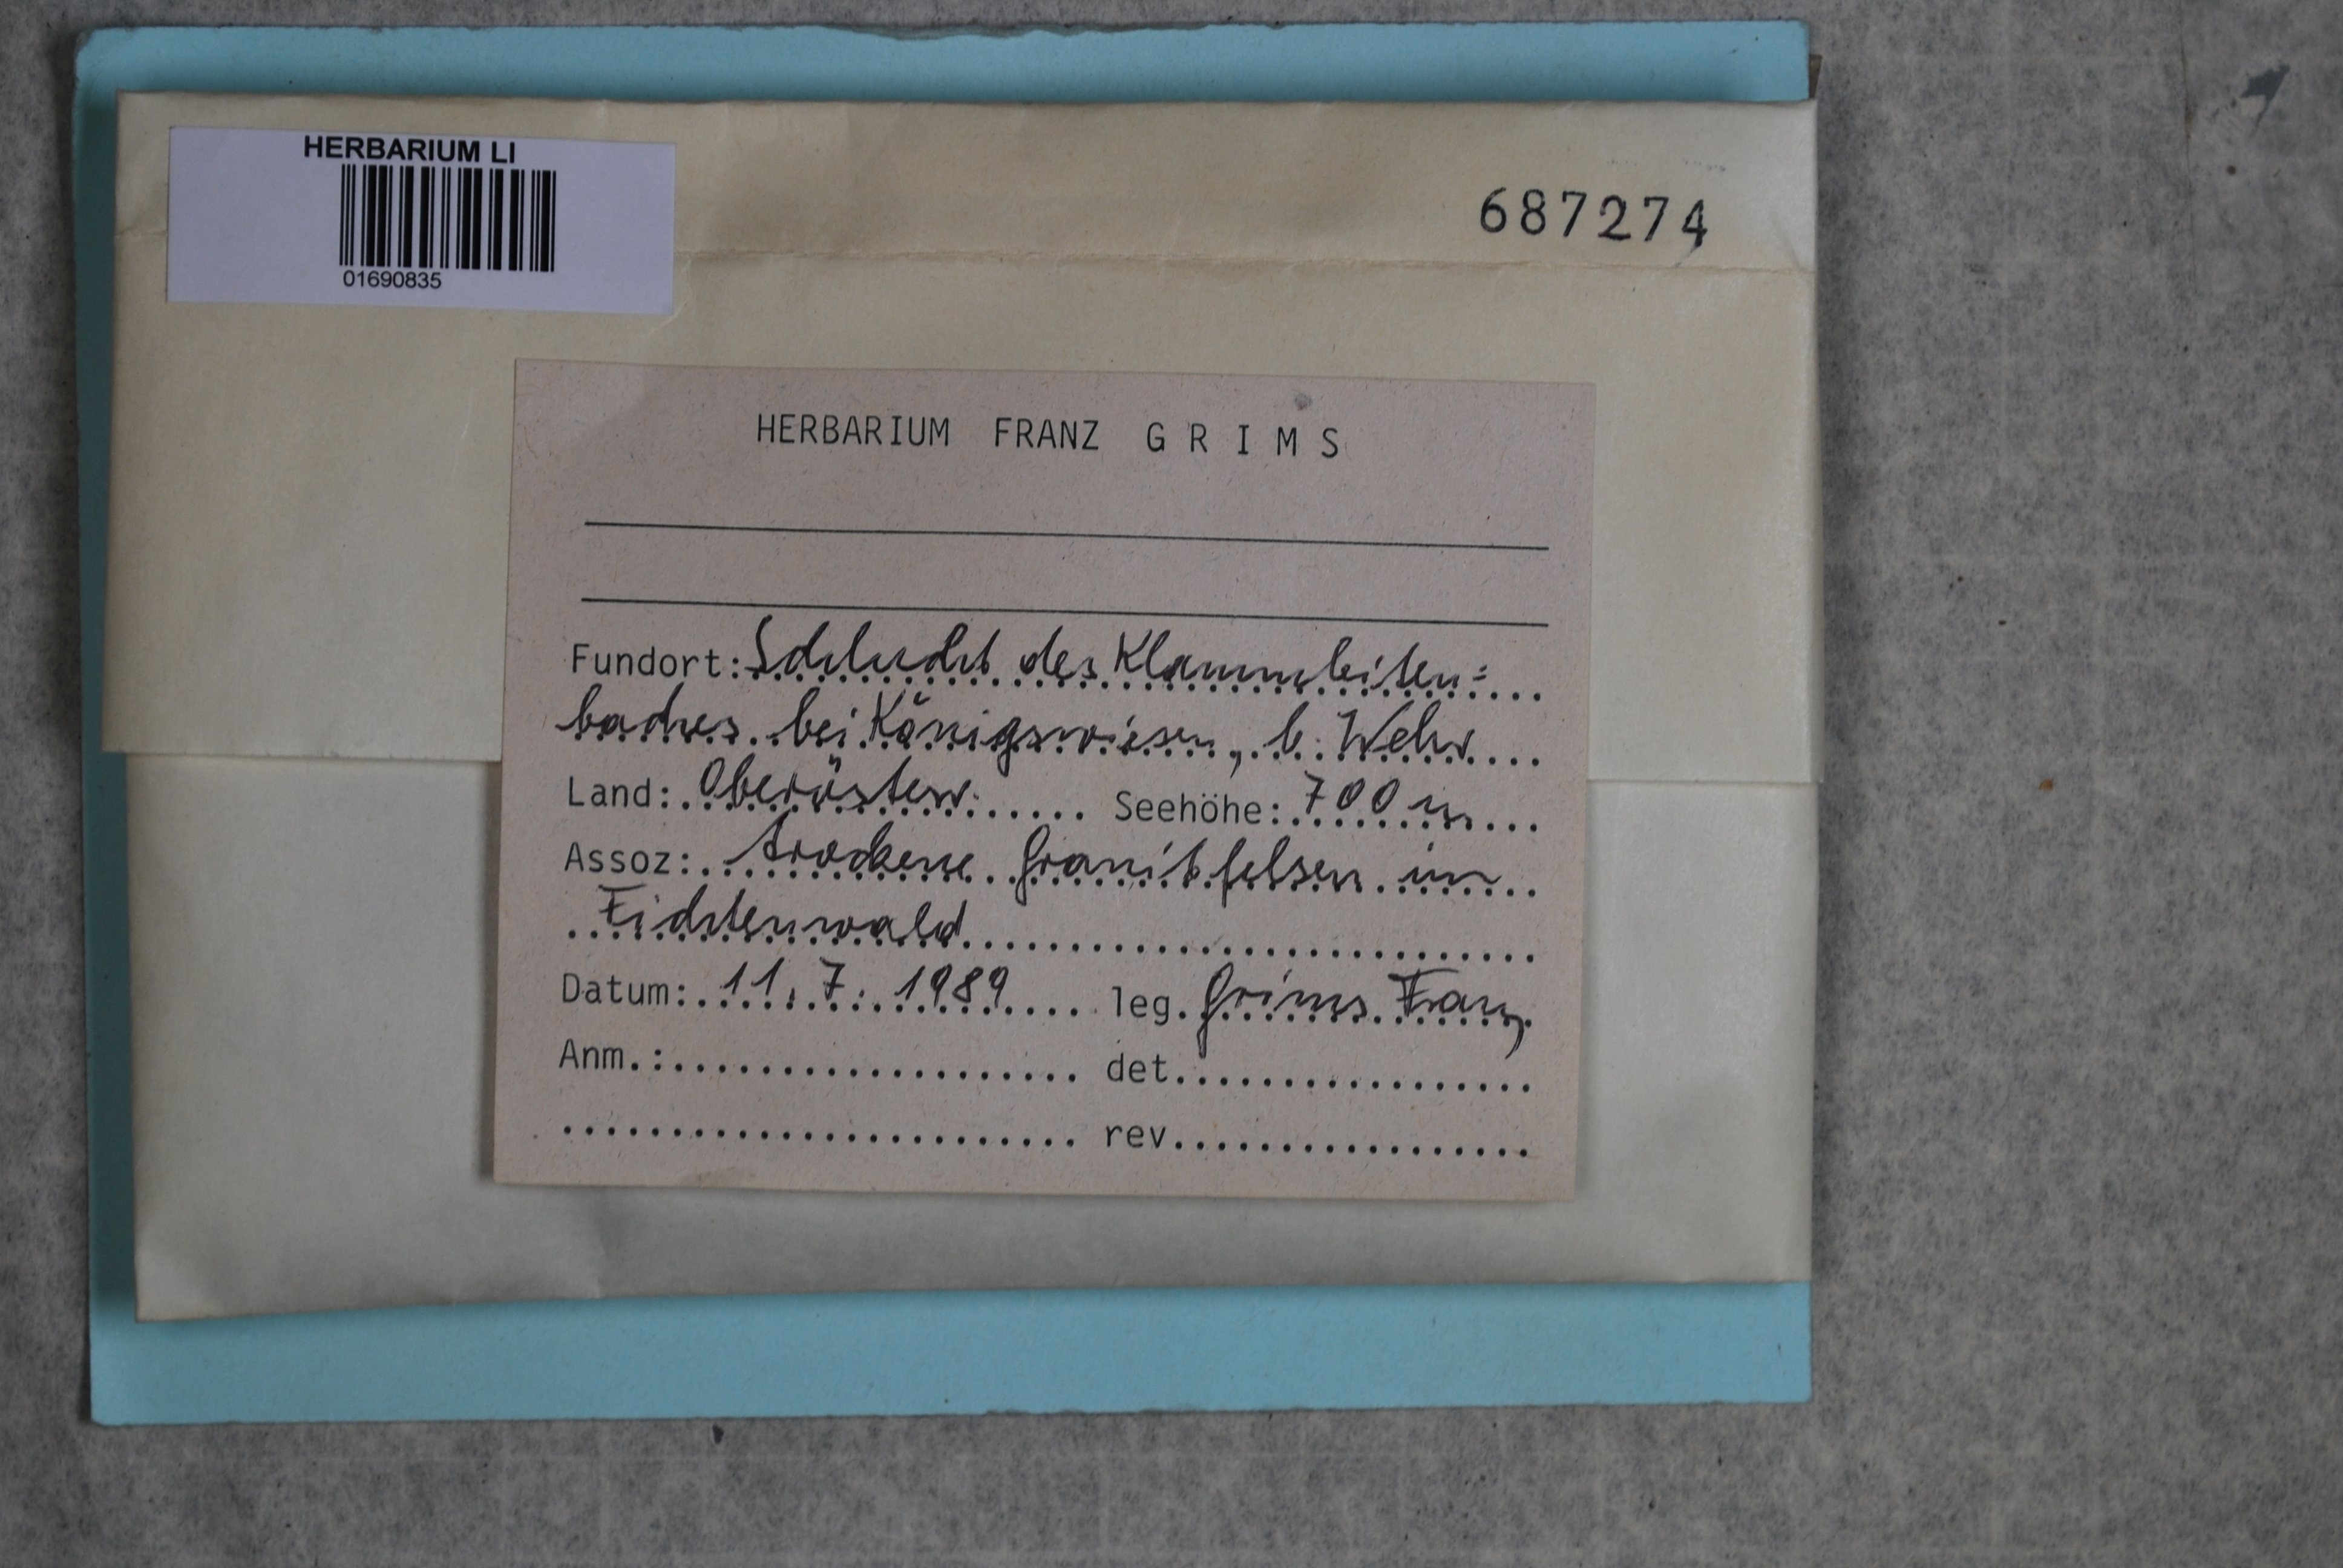 HERBARIUM LI
01690835
687274
HERBARIUM FRANZ GRIMS
Fundort: Schlucht des Klammleiten=
baches bei Königswiesen, b. Wehr
Land: Oberösterr. Seehöhe: 700 m
Assoz: trockene Granitfelsen im
Fichtenwald
Datum: 11. 7. 1989 leg. Grims Franz
Anm.: det.
rev.